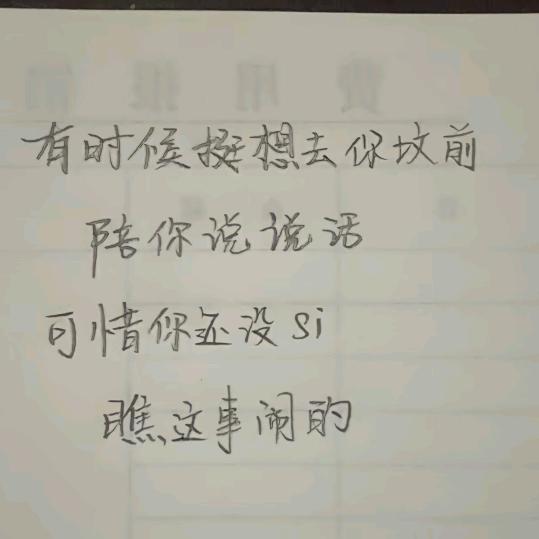 有时候挺想去你坟前
陪你说说话
可惜你还没si
瞧这事闹的